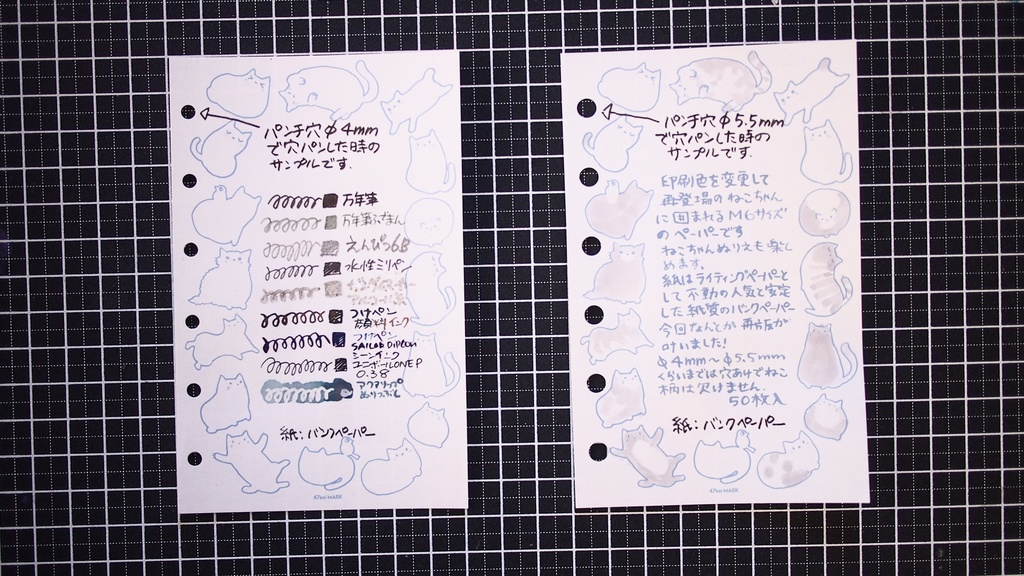 パンチ穴φ4mm
で穴パンした時の
サンプルです.
万年筆
えんぴつ6B
水性ミリペン
つけペン
顔料インク
つけペン
SAILOR DIPTON
シーンインク
ユニボールONE P
0.38
ぬりつぶし
紙:バンクペーパー
パンチ穴φ5.5mm
で穴パンした時の
サンプルです.
印刷色を変更して
再登場のねこちゃん
に囲まれるM6サイズ
のペーパーです
ねこちゃんぬりえも楽し
めます.
紙はライティングペーパーと
して不動の人気と安定
した紙質のバンクペーパー
今回なんとか再販が
叶いました!
φ4mm〜φ5.5mm
くらいまでは穴あけでねこ
柄は欠けません.
50枚入
紙:バンクペーパー